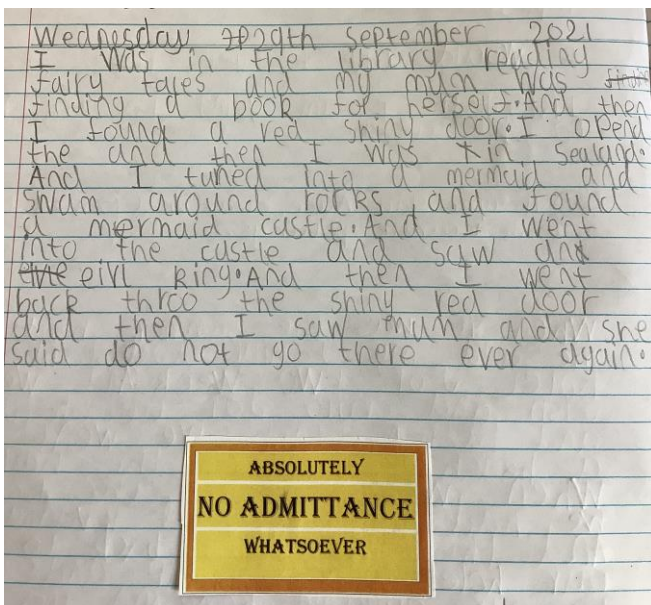 Wednesday 29th September 2021
I was in the library reading
fairy tales and my mum was
finding a book for herself. And then
I found a red shiny door. I opend
the and then I was in Sealand.
And I tuned into a mermaid and
swam around rocks and found
a mermaid castle. And I went
into the castle and saw an
eivl king. And then I went
back throo the shiny red door
and then I saw mum and she
said do not go there ever again.
ABSOLUTELY
NO ADMITTANCE
WHATSOEVER